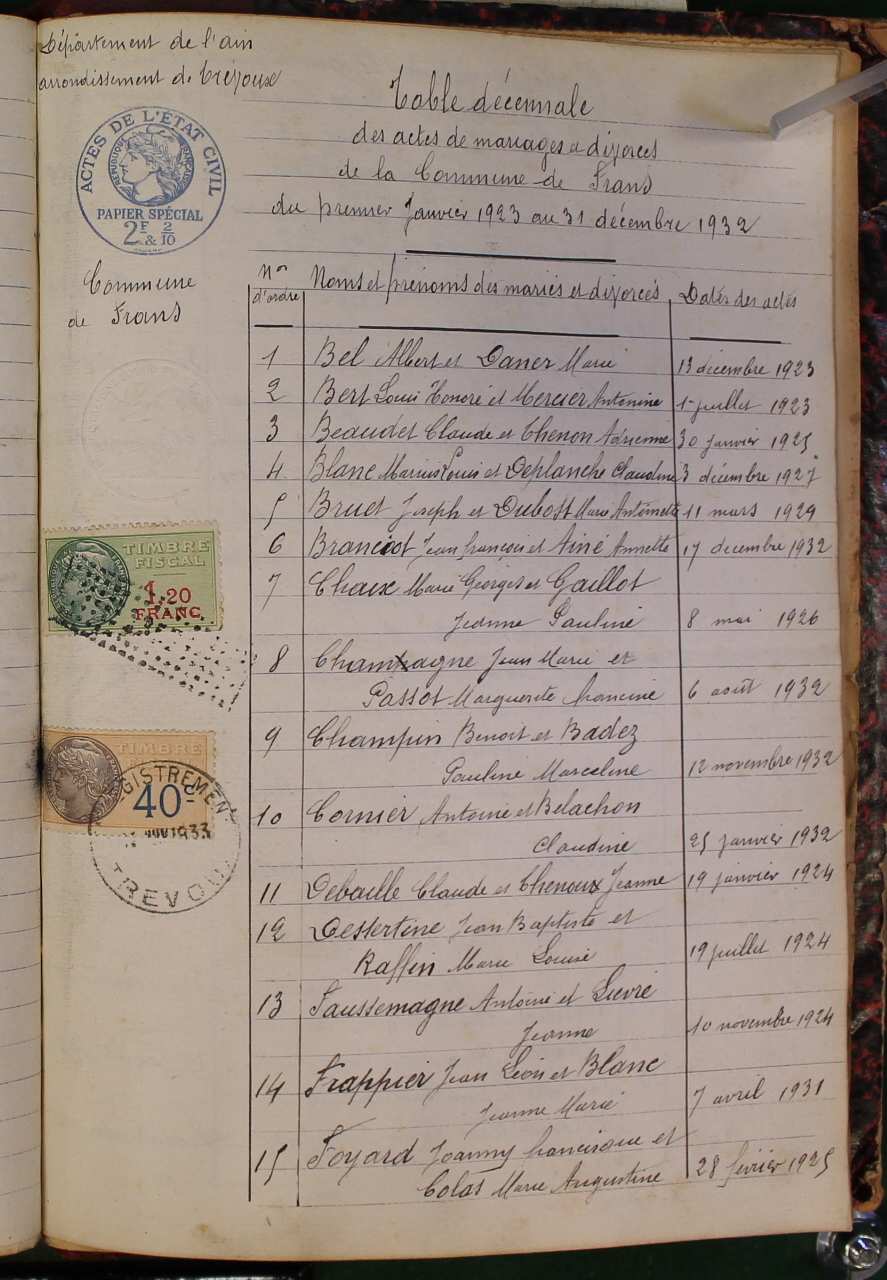 Département de l'ain
arrondissement de Trévoux
ACTES DE L'ÉTAT CIVIL
RÉPUBLIQUE FRANÇAISE
PAPIER SPÉCIAL
2F 2/10
&
Commune
de Frans
Table décennale
des actes de mariages et divorces
de la Commune de Frans
du premier Janvier 1923 au 31 décembre 1932
Nos d'ordre Noms et prénoms des mariés et divorcés Dates des actes
1 Bel Albert et Daner Marie 13 décembre 1923
2 Bert Louis Honoré et Mercier Antonine 1er juillet 1923
3 Beaudet Claude et Chenon Adrienne 30 janvier 1925
4 Blanc Marius Louis et Deplanche Claudine 3 décembre 1927
5 Bruet Joseph et Dubost Marie Antoinette 11 mars 1929
6 Branciot Jean françois et Ainé Annette 17 décembre 1932
7 Chaux Marie Georges et Gaillot
Jeanne Pauline 8 mai 1926
8 Champagne Jean Marie et
Passot Marguerite francine 6 août 1932
9 Champin Benoit et Badez
Pauline Marceline 12 novembre 1932
10 Cornier Antoine et Belachon
Claudine 25 janvier 1932
11 Debaille Claude et Chenoux Jeanne 19 janvier 1924
12 Dessertine Jean Baptiste et
Raffin Marie Louise 19 juillet 1924
13 Faussemagne Antoine et Lievre
Jeanne 10 novembre 1924
14 Frappier Jean Léon et Blanc
Jeanne Marie 7 avril 1931
15 Foyard Joanny francisque et
Colas Marie Augustine 28 février 1925
TIMBRE
FISCAL
1.20
FRANC
TIMBRE
40c
1933
TREVOUX